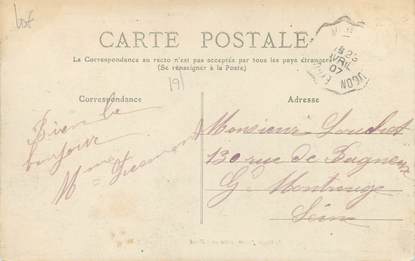 lot
CARTE POSTALE
La Correspondance au recto n'est pas acceptée par tous les pays étrangers
(Se renseigner à la Poste)
191
Correspondance
Adresse
Bien le
bonjour
Mme
Monsieur
130 rue de Bagneux
Gd Montrouge
Seine